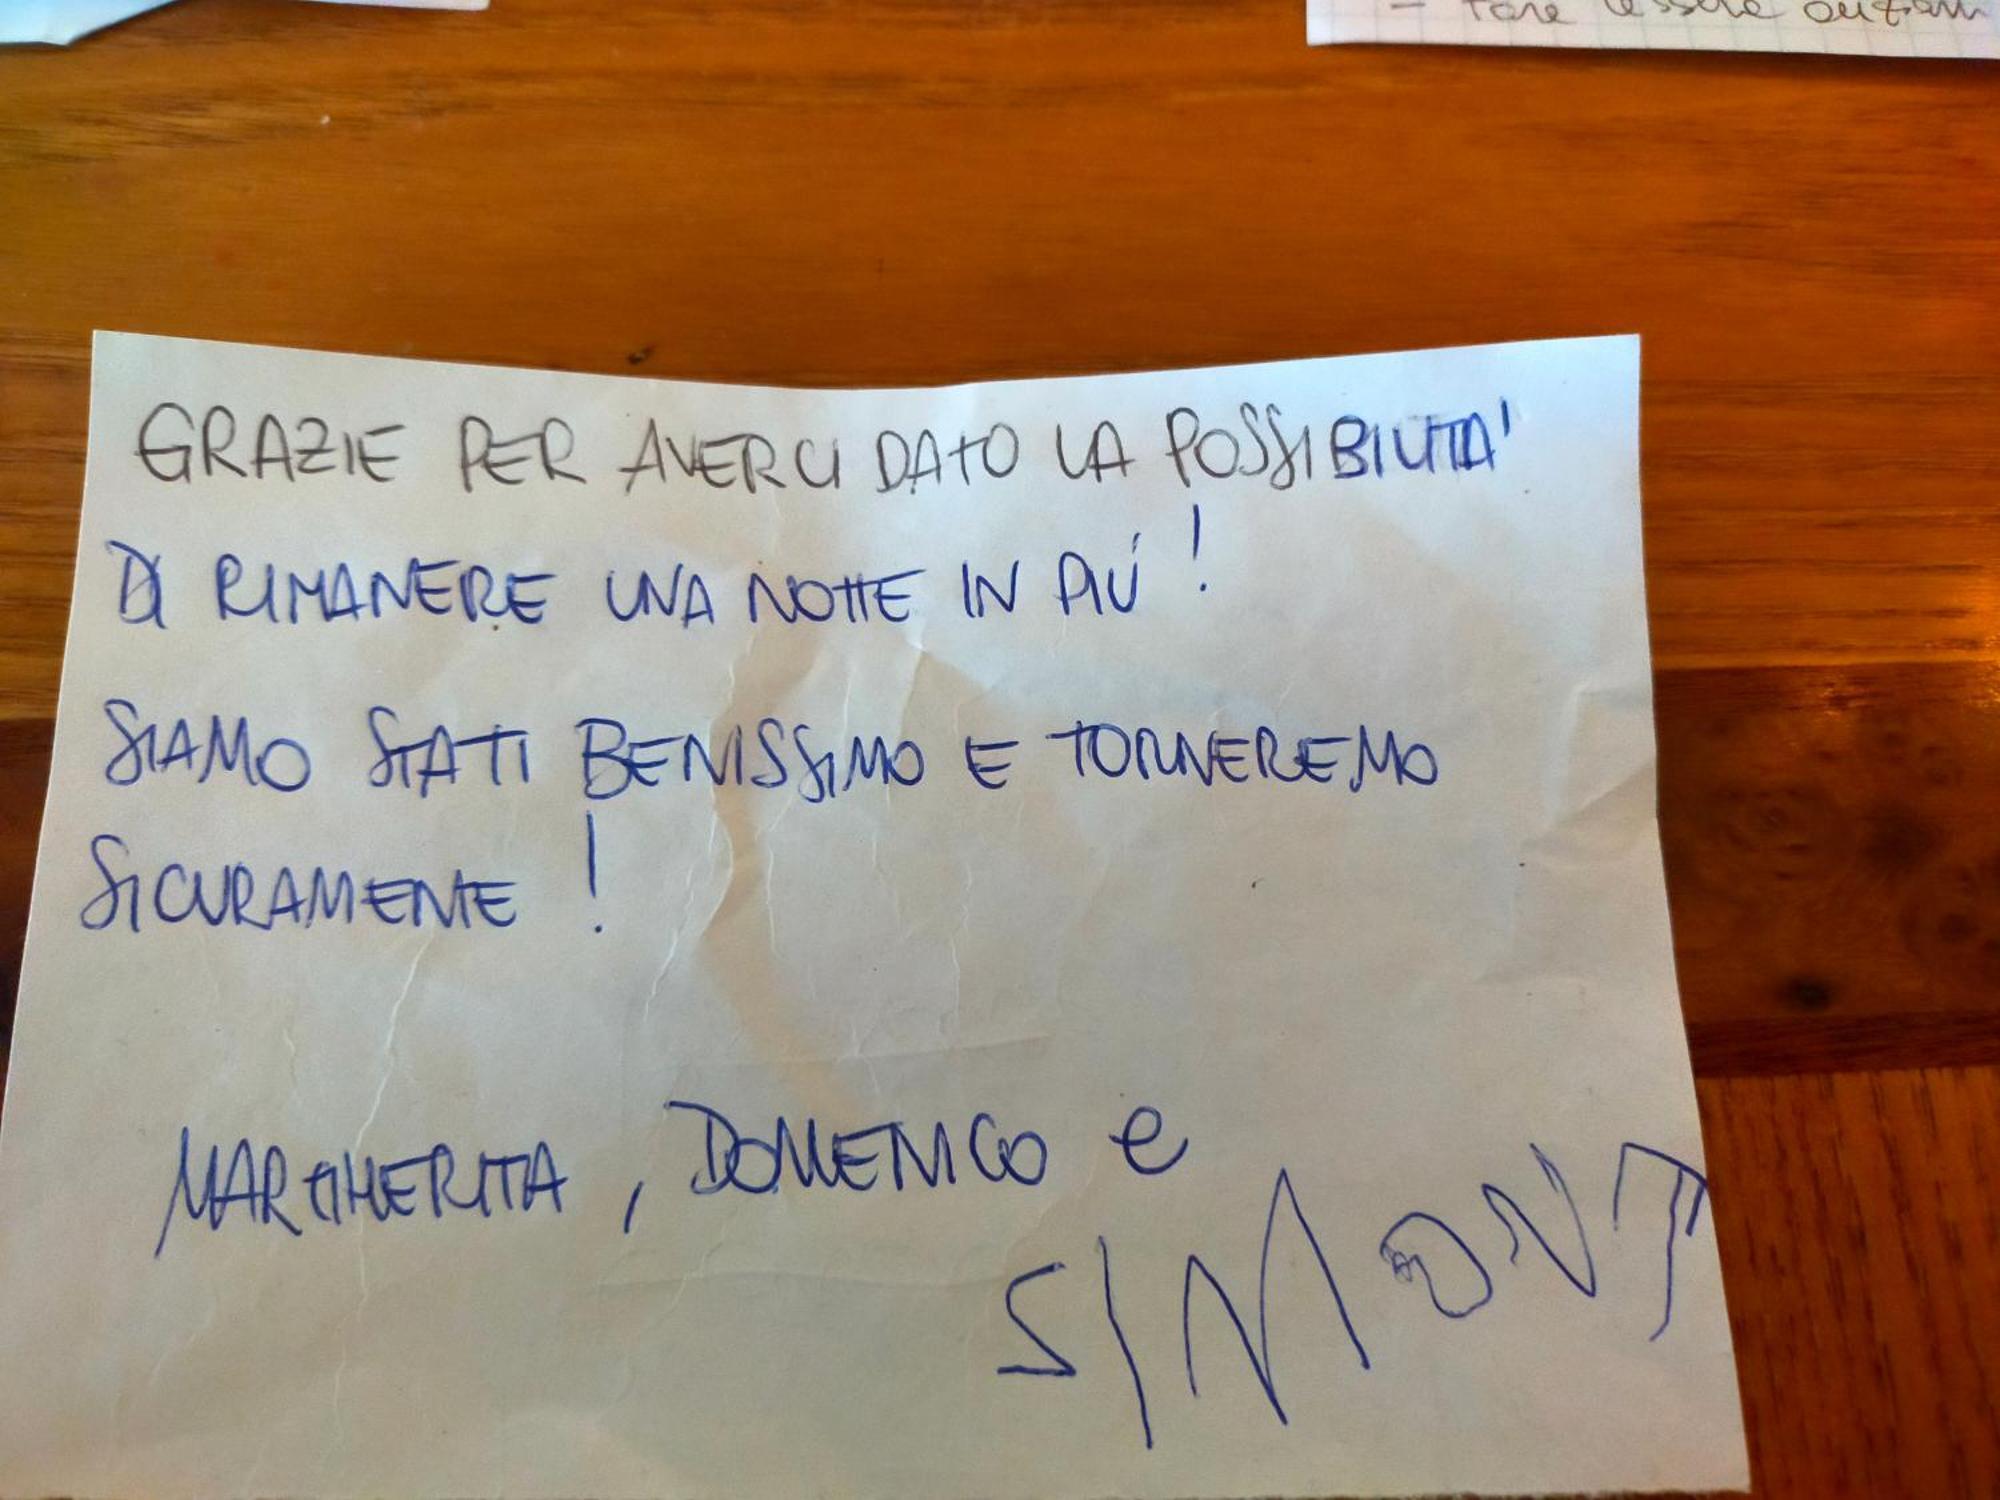 - fare tessere
GRAZIE PER AVERCI DATO LA POSSIBILITA'
DI RIMANERE UNA NOTTE IN PIÚ !
SIAMO STATI BENISSIMO E TORNEREMO
SICURAMENTE !
MARGHERITA, DOMENICO e
SIMONE